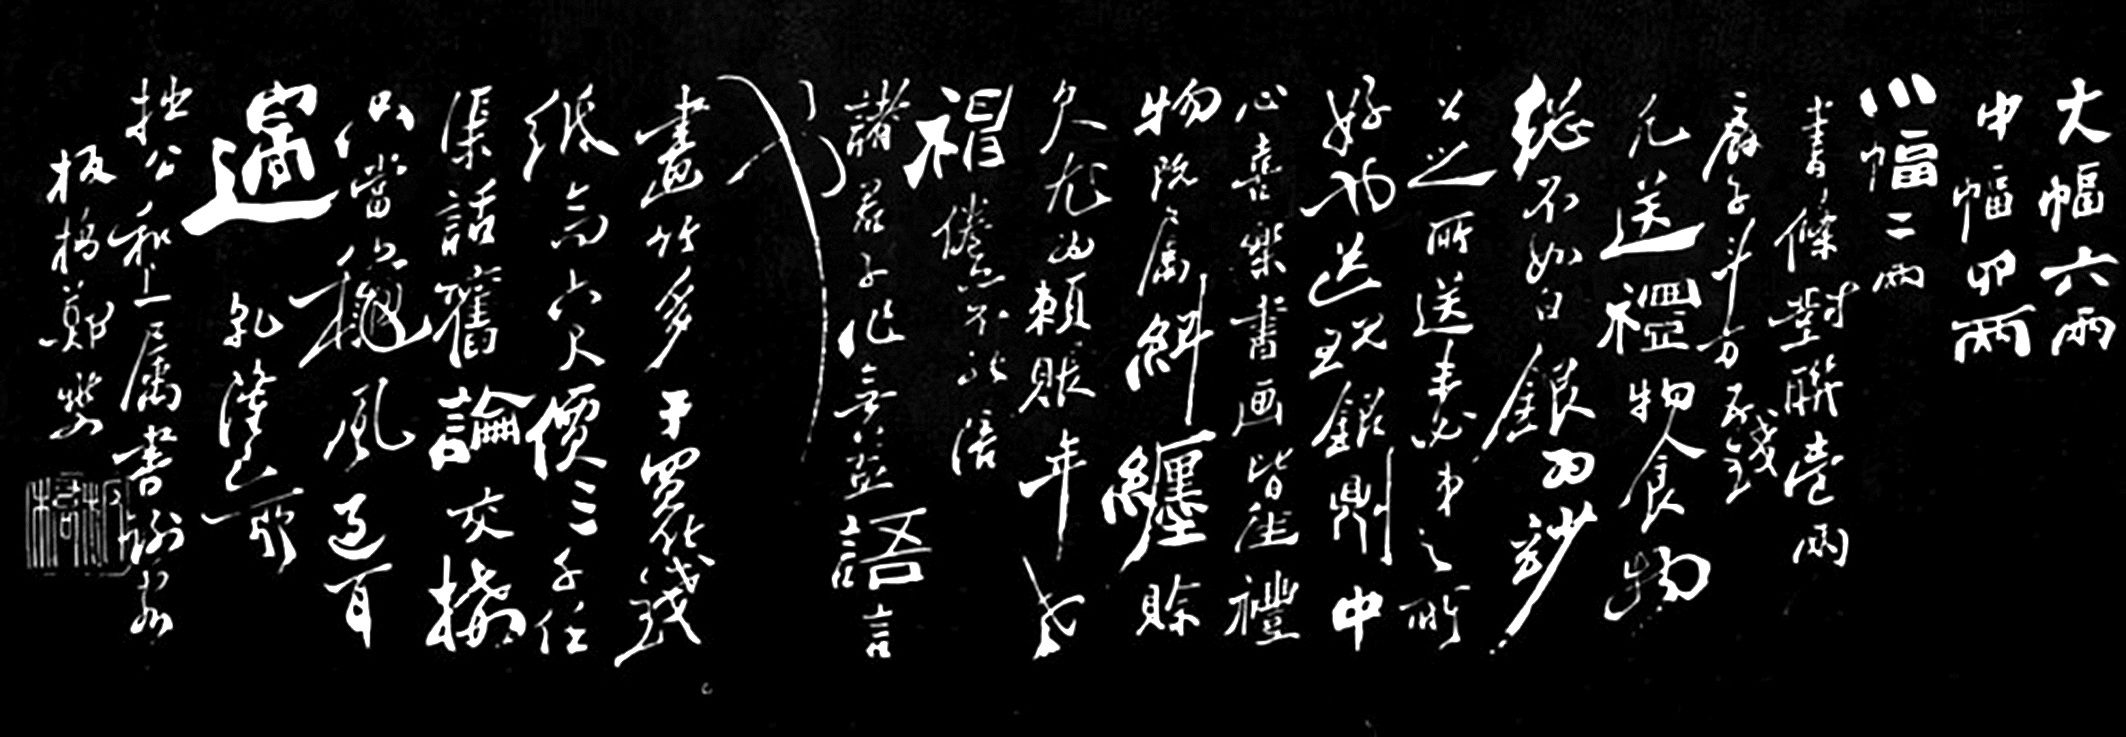 大幅六兩
中幅四兩
小幅二兩
書條對聯壹兩
扇子斗方五錢
凡送禮物食物
總不如白銀為妙
公之所送未必弟之所
好也送現銀則中
心喜樂書画皆佳禮
物既屬糾纏賒
欠尤為賴賬年老
神倦亦不能陪
諸君子作無益語言
也
畫竹多于買竹錢
紙高六尺價三千任
渠話舊論交接
只當秋風過耳
邊乾隆己卯
拙公和上屬書謝客
板橋鄭燮
板橋